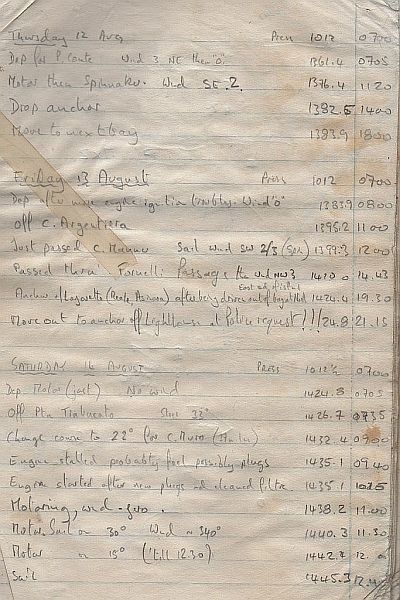 Thursday 12 Aug Press 1012 0700
Dep for P. Conte Wind 3 NE then "0" 1361.4 0705
Motor then Spinnaker. Wind SE.2. 1376.4 1120
Drop anchor 1382.5 1400
Move to next bay 1383.9 1800
Friday 13 August Press 1012 0700
Dep after more engine ignition troubles. Wind "0" 1383.9 0800
Off C. Argentiera 1395.2 1100
Just passed C. Sail wind SW 2/3 1399.3 1200
Passed thro' Fornelli Passage the wd NW3 1410.0 14.43
East end of island
Anchor (Asinara) after being driven out of 1424.4 19.30
Move out to anchor off Lighthouse at Police request!!! 24.8 21.15
SATURDAY 14 AUGUST PRESS 1012½ 0700
Dep Motor (just) No wind 1424.8 0705
Off Pta Trabucato Steer 32° 1426.7 0735
Change course to 22° for C. Muro 1432.4 0900
Engine stalled probably fuel possibly plugs 1435.1 0940
Engine started after new plugs and cleaned filter 1435.1 1015
Motoring, wind - zero. 1438.2 11.00
Motor Sail on 30° Wind ~ 340° 1440.3 11.30
Motor on 15° ('till 12.30) 1442.2 12.0
Sail 1445.3